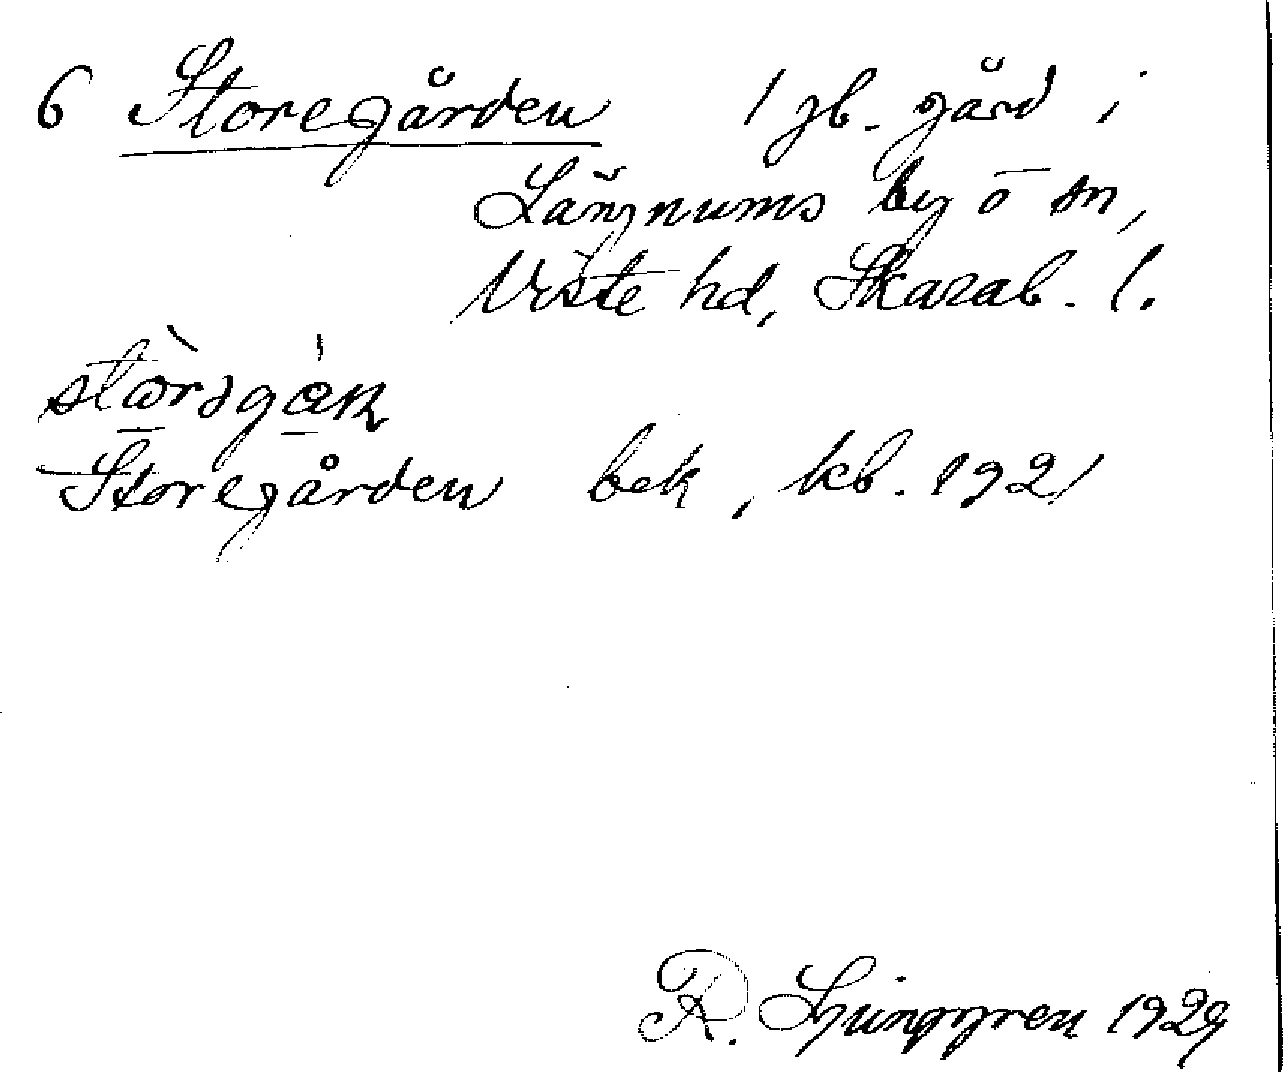 6 Storegården 1 jb. gård i
Längnums by o sn,
Viste hd, Skarab. l.
Storegården bek, kb. 1921
R. Ljunggren 1929